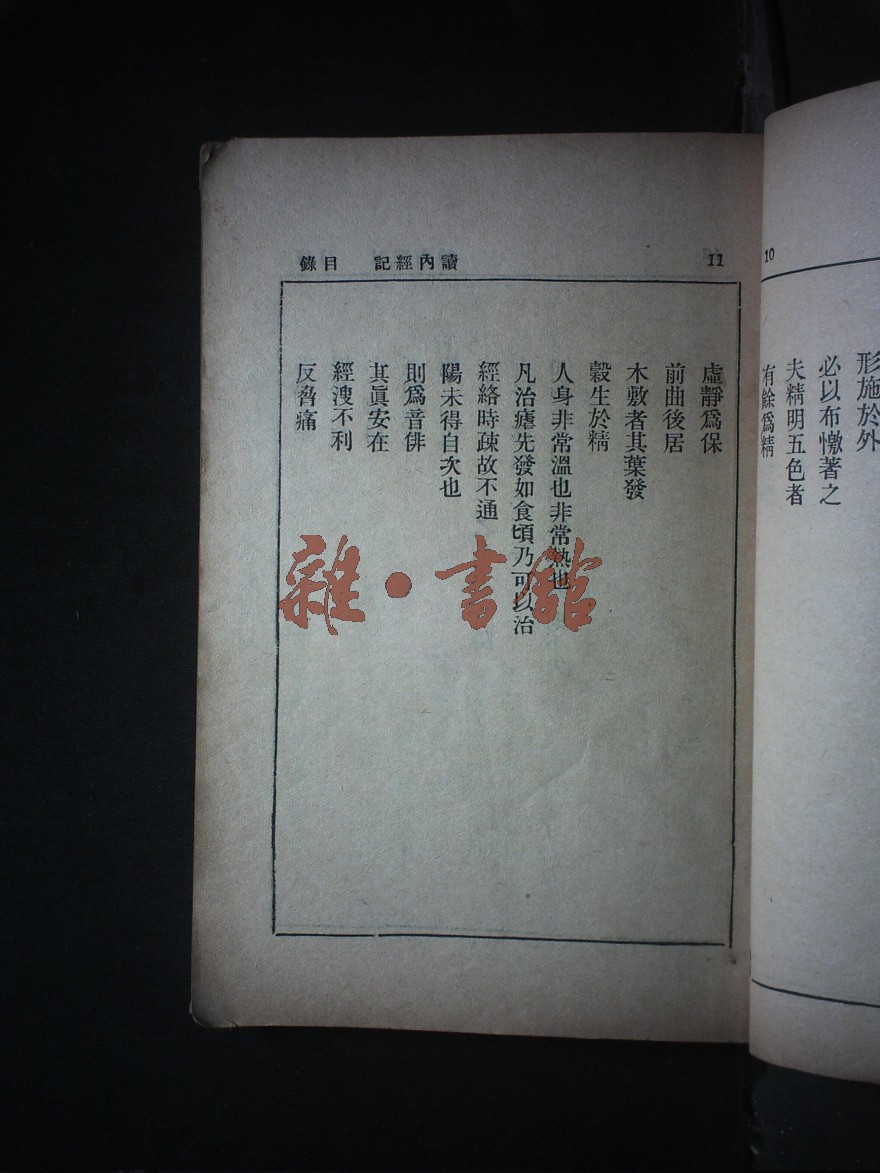 10
形施於外
必以布憿著之
夫精明五色者
有餘爲精
11
讀內經記 目錄
虛靜爲保
前曲後居
木敷者其葉發
穀生於精
人身非常溫也非常熱也
凡治瘧先發如食頃乃可以治
經絡時疎故不通
陽未得自次也
則爲音俳
其眞安在
經溲不利
反脅痛
雜·書館